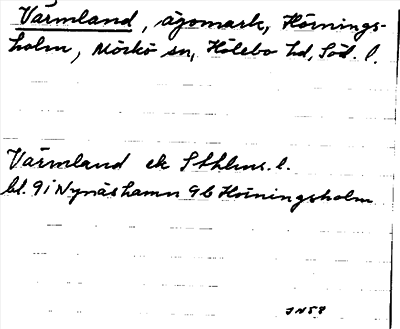 Värmland, ägomark, Hörnings-
holm, Mörkö sn, Hölebo hd, Söd. l.
Värmland ek Sthlms. l.
bl. 9i Nynäshamn 9b Hörningsholm
JN58